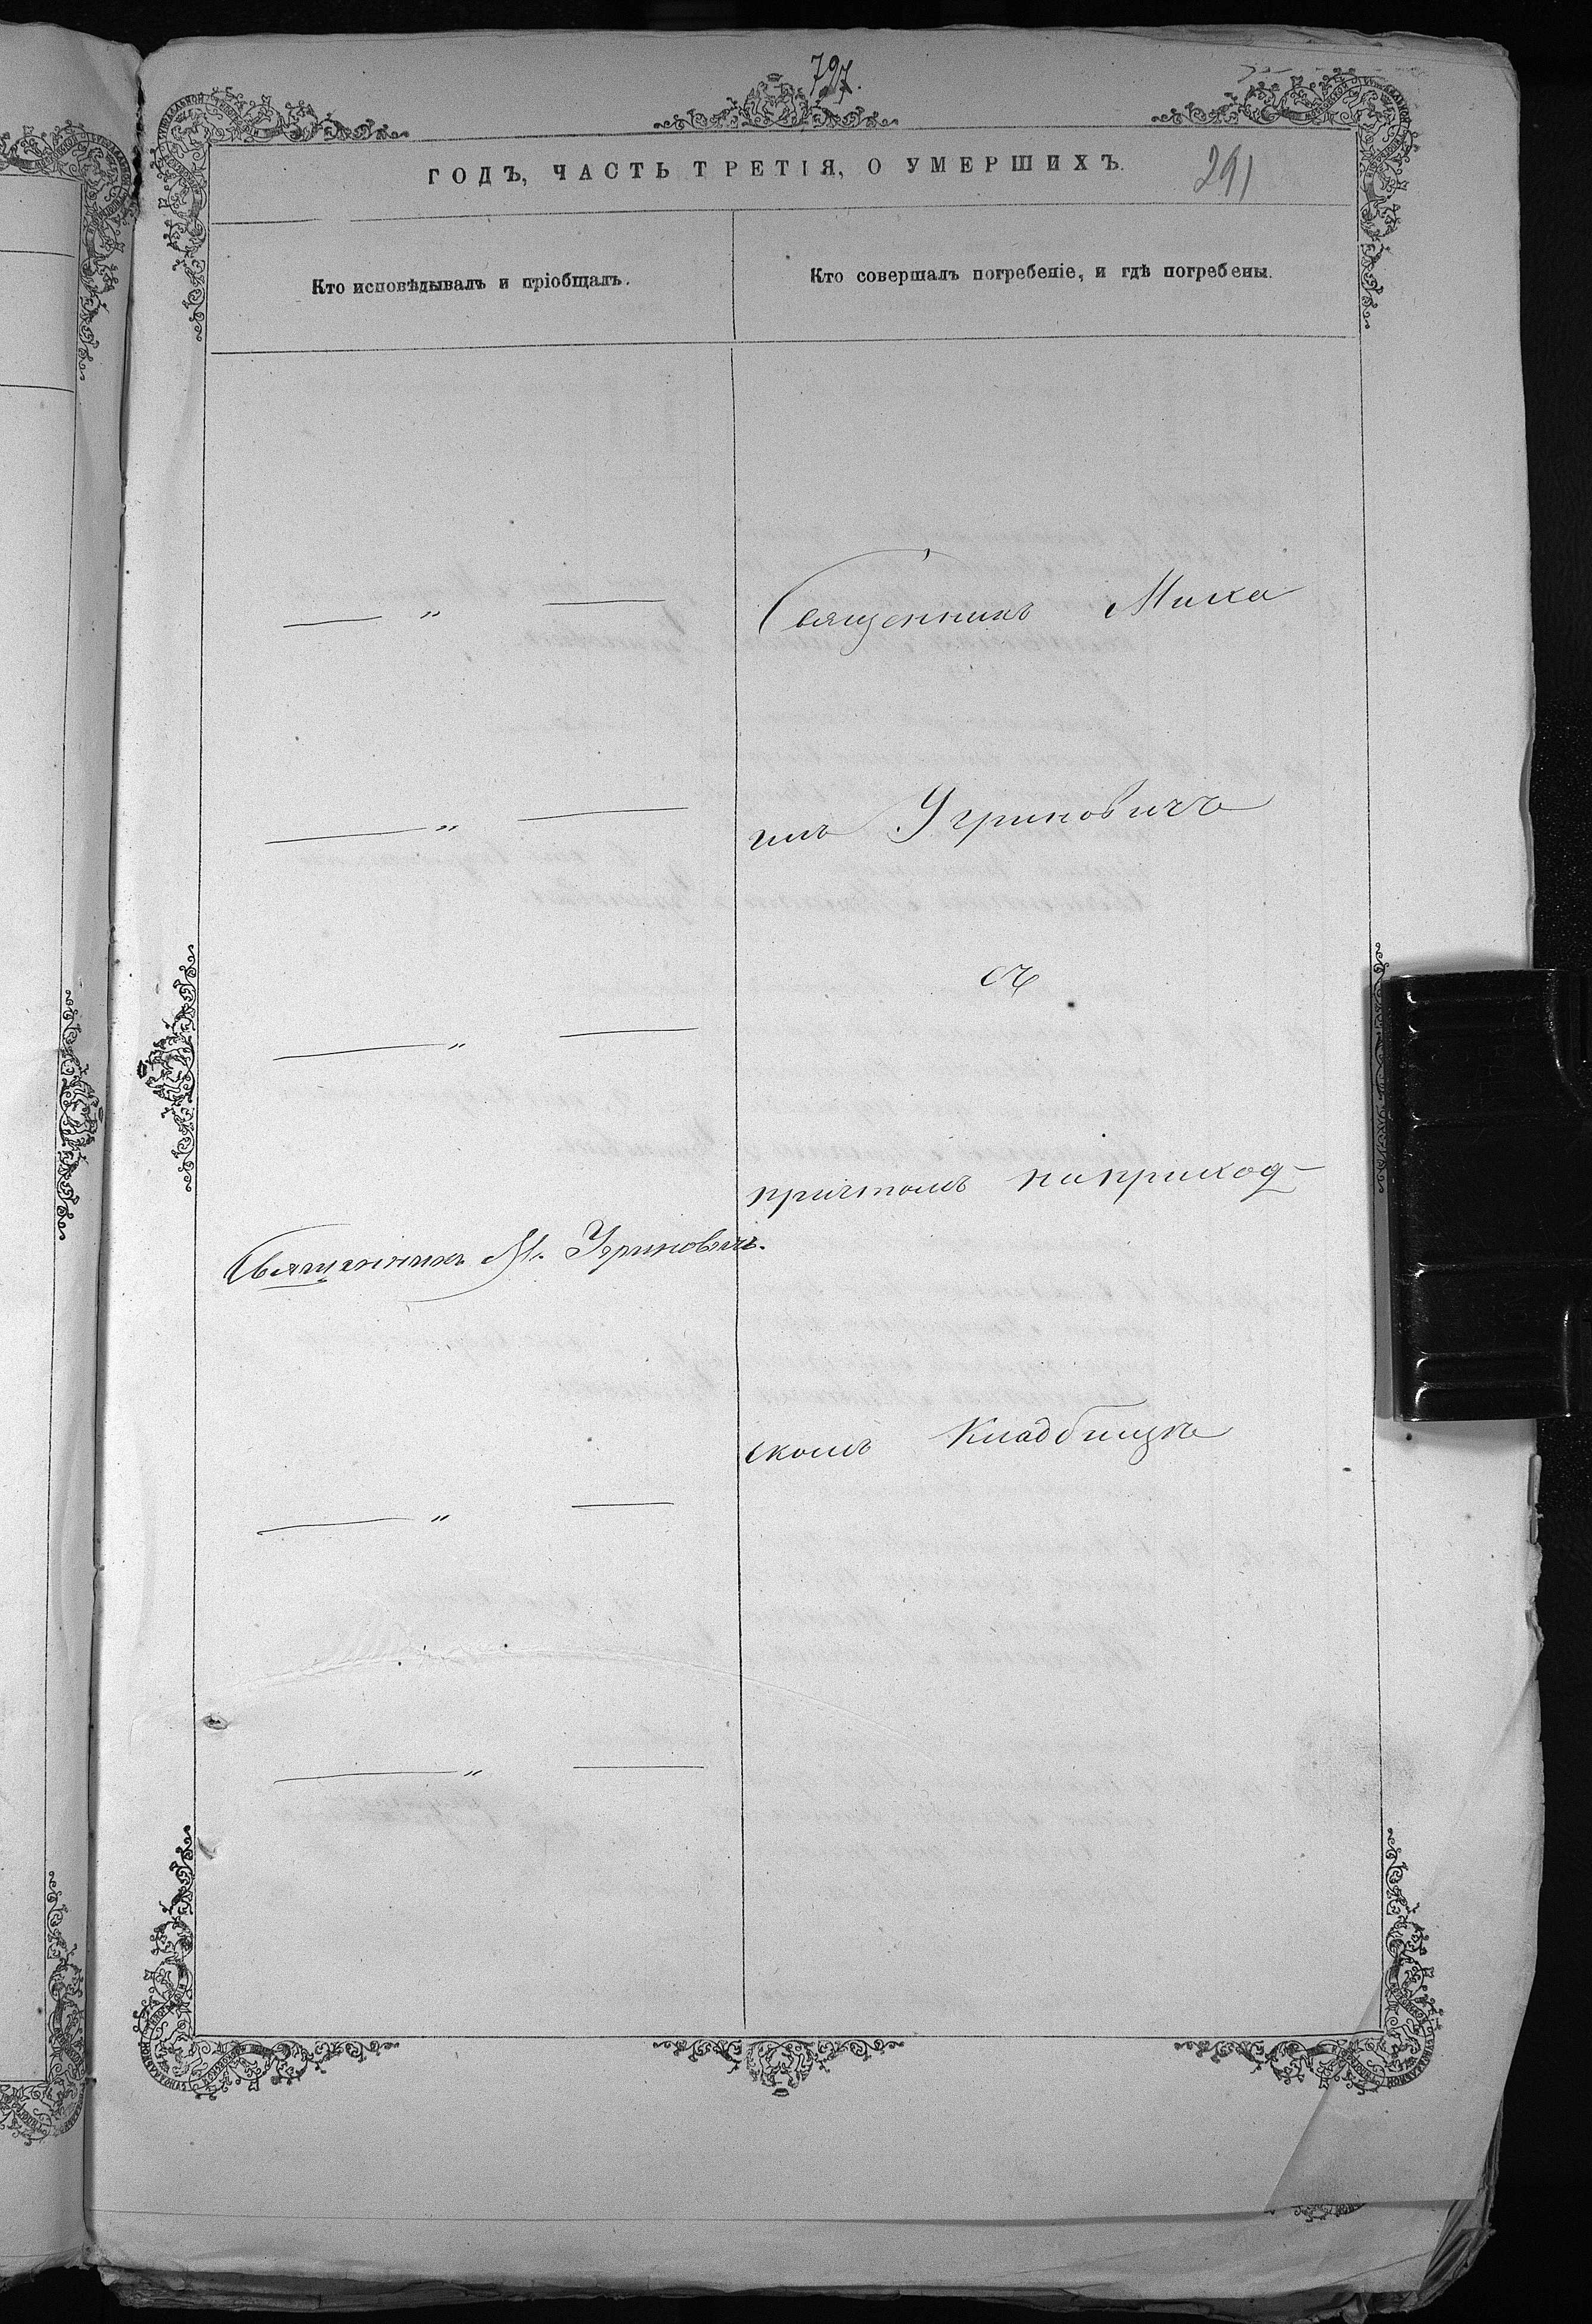 797.
ГОДЪ, ЧАСТЬ ТРЕТІЯ, О УМЕРШИХЪ.
291
Кто исповѣдывалъ и пріобщалъ.
Кто совершалъ погребеніе, и гдѣ погребены.
— " —
Священникъ Миха
— " —
илъ Угриновичъ
съ
— " —
причтомъ на приход-
Священникъ М. Угриновичъ.
скомъ Кладбищѣ
— " —
— " —